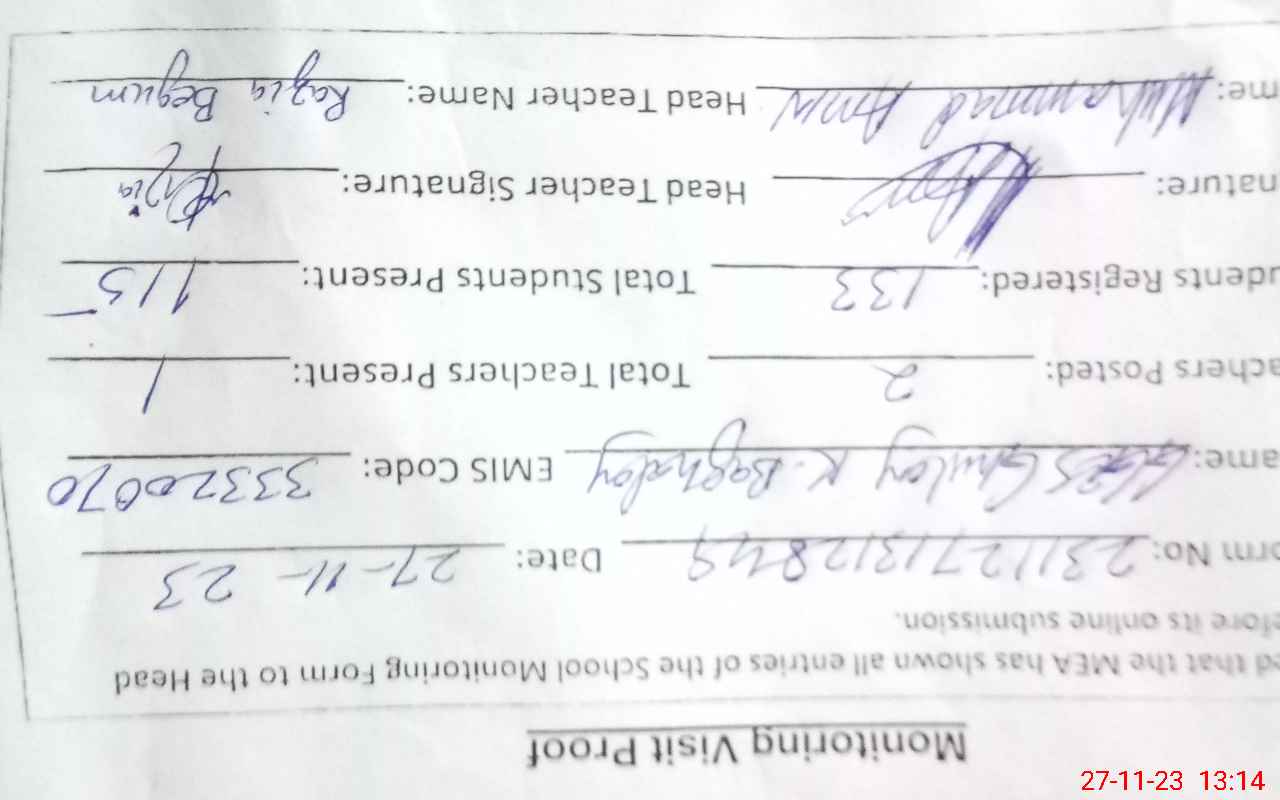 Monitoring Visit Proof
ed that the MEA has shown all entries of the School Monitoring Form to the Head
efore its online submission.
orm No: 2311271312849 Date: 27-11-23
ame: K. Baghalay EMIS Code: 33320070
achers Posted: 2 Total Teachers Present: 1
udents Registered: 133 Total Students Present: 115
nature: Head Teacher Signature: Razia
me: Muhammad Amin Head Teacher Name: Razia Begum
27-11-23 13:14